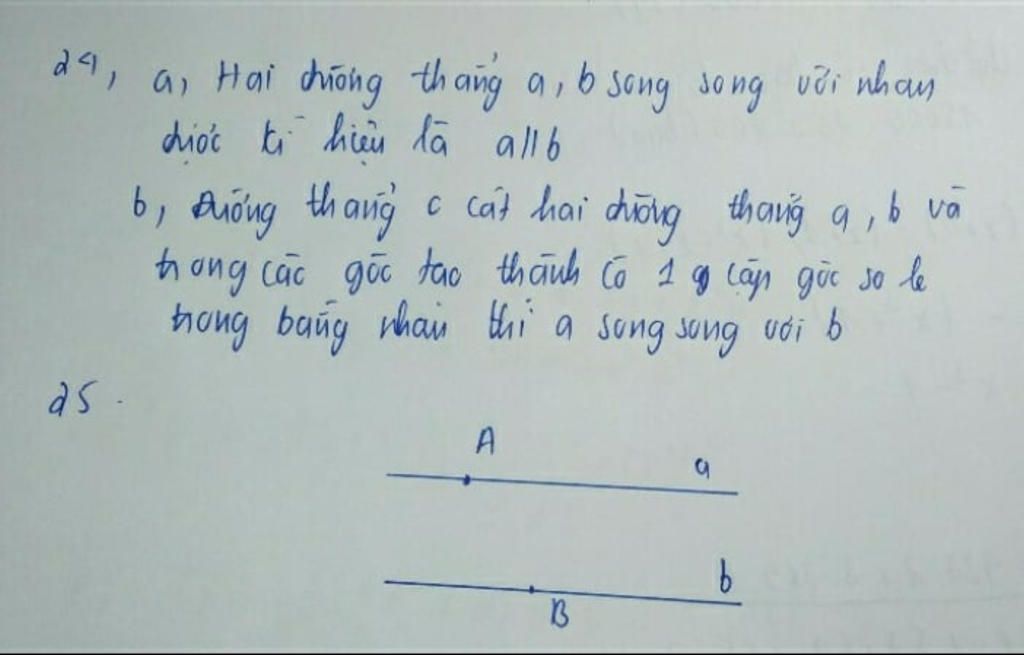 24, a, Hai đường thẳng a, b song song với nhau
được kí hiệu là a//b
b, Đường thẳng c cắt hai đường thẳng a, b và
trong các góc tạo thành có 1 cặp góc so le
trong bằng nhau thì a song song với b
25.
A
a
b
B